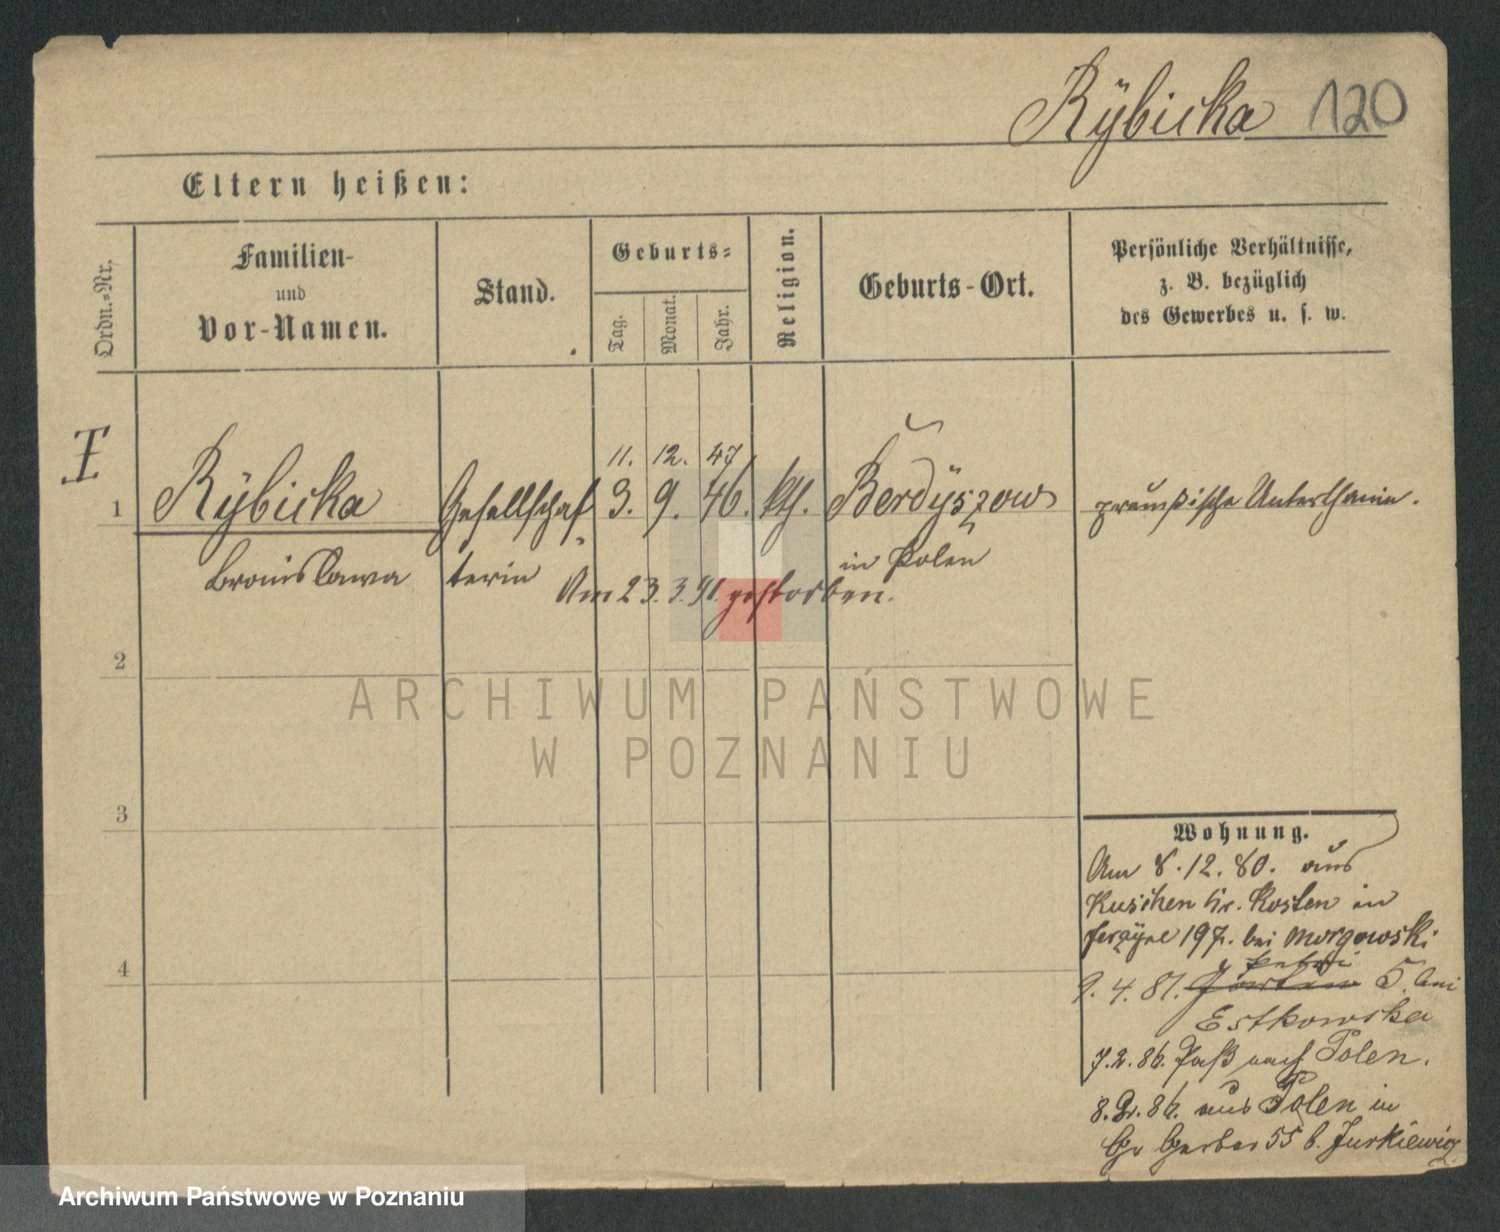 Rÿbicka 120
Eltern heißen:
Ordn.-Nr.
Familien-
und
Vor-Namen.
Stand.
Geburts-
Tag.
Monat.
Jahr.
Religion.
Geburts-Ort.
Persönliche Verhältnisse,
z. B. bezüglich
des Gewerbes u. s. w.
I
11. 12. 47
1 Rÿbicka Gesellschaf 3. 9. 46. kth. Berdÿszow preußische Unterthanin.
Bronislawa terin in Polen
Am 23.3.91. gestorben.
2
ARCHIWUM PAŃSTWOWE
W POZNANIU
3
Wohnung.
Am 8.12.80. aus
Kuschen Kr. Kosten in
197. bei Morgowski
4
9. 4. 81. 5. bei
Estkowska
7.2.86. Paß nach Polen.
8. 86. aus Polen in
Gr Gerber 55 b. Jurkiewicz
Archiwum Państwowe w Poznaniu